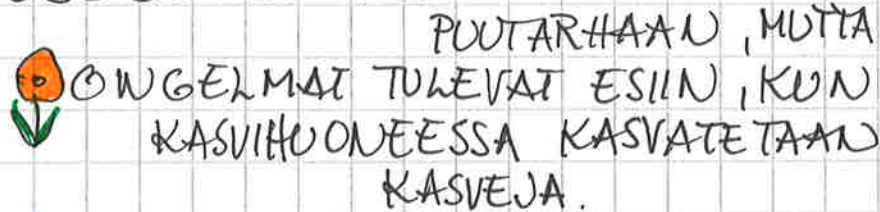 PUUTARHAAN, MUTTA
ONGELMAT TULEVAT ESIIN, KUN
KASVIHUONEESSA KASVATETAAN
KASVEJA.